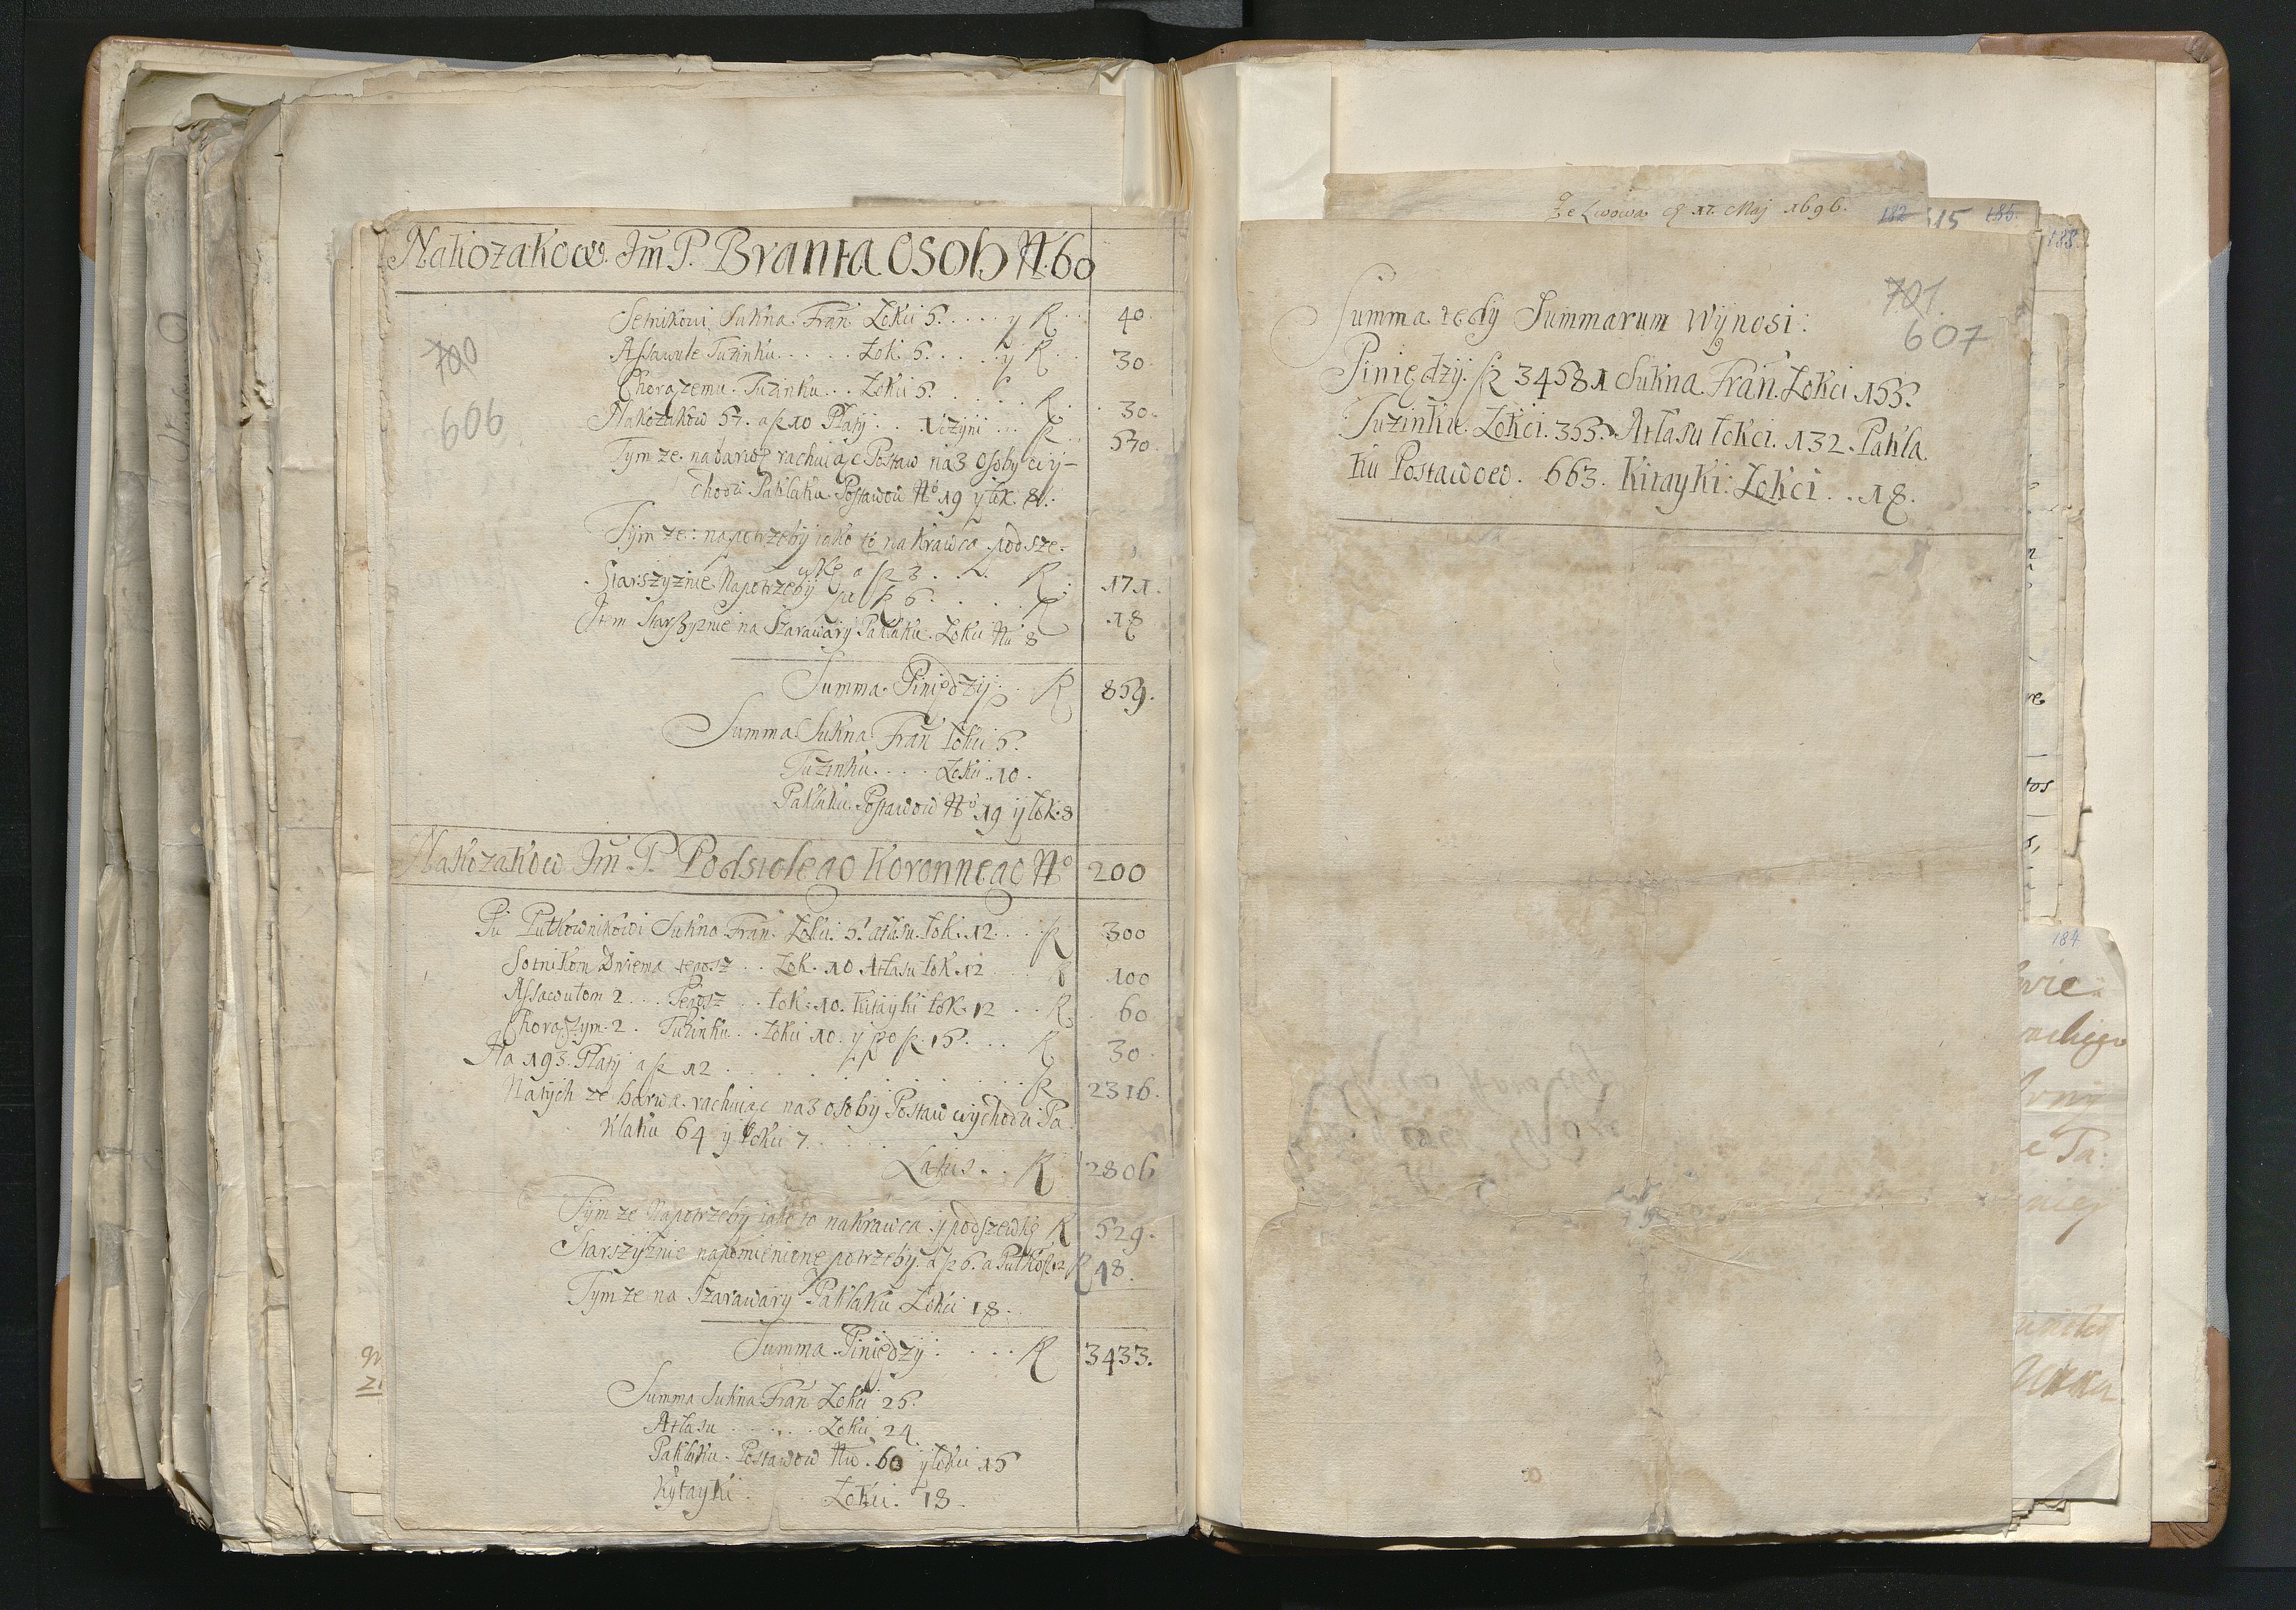 Na Kozakow Im P. Branta Osob N. 60
700
606
Setnikowi Sukna Fran Łokci 5. . . . y R. . 40.
Assawule Tuzinku . . . . Łok 5. . . . y R. . 30.
Chorążemu Tuzinku . . Łokci 5. . . . . R. . 30.
Na Kozakow 57. a R 10 Płaty . . Uczyni . . . R. . 570.
Tym ze na barwę rachuiąc Postaw na 3 Osoby wy-
chodzi Paklaku Postawow No 19 y łok. 8.
Tym ze: na potrzeby iako to na krawca podsze-
wkę a R 3. . . R. 171.
Starszyznie Na potrzeby po R 6. . . . R 18
Item Starszyznie na Szarawary Paklaku Łokci Nu 8
Summa Piniędzy . . R 859.
Summa Sukna Fran Łokci 5.
Tuzinku . . . . Łokci 10.
Paklaku Postawow No 19 y łok. 8
Na Kozakow Im P. Podstolego Koronnego No 200
Pu Pułkownikowi Sukna Fran. Łokci 5. atłasu łok. 12. . . . R 300
Sotnikom Dwiema tegosz . . Łok. 10 Atłasu łok 12 . . . R 100
Assawułom 2 . . . Tegosz . . łok. 10. Kitayki łok. 12 . . R. 60
Chorążym 2 . Tuzinku . . Łokci 10. y po R. 15. . . . R 30.
Na 193. Płaty a R 12 . . . . . . . . . R 2316.
Na tych ze barwa rachuiąc na 3 osoby Postaw wychodzi Pa
klaku 64 y łokci 7. . . . .
Latus . . R 2806
Tym ze Na potrzeby iako to na krawca y podszewkę R 529.
Starszyznie na pomienione potrzeby a R 6. a Pułko R 12 R 48.
Tym ze na Szarawary Paklaku Łokci 18. .
Summa Piniędzy . . . . R 3433.
Summa Sukna Fran Łokci 25.
Atłasu . . . . . Łokci 24
Paklaku Postawow Nu . 60 y łokci 15
Kytayki . . . Łokci . 18.
Ze Lwowa d 17. Maj 1696.
182 515 185.
188.
701.
607
Summa tedy Summarum Wynosi:
Piniędzy. R 34581 Sukna. Fran. Łokci 155.
Tuzinku. Łokci. 355. Atłasu łokci. 132. Pakla
ku Postawow. 663. Kitayki: Łokci . . 18.
184